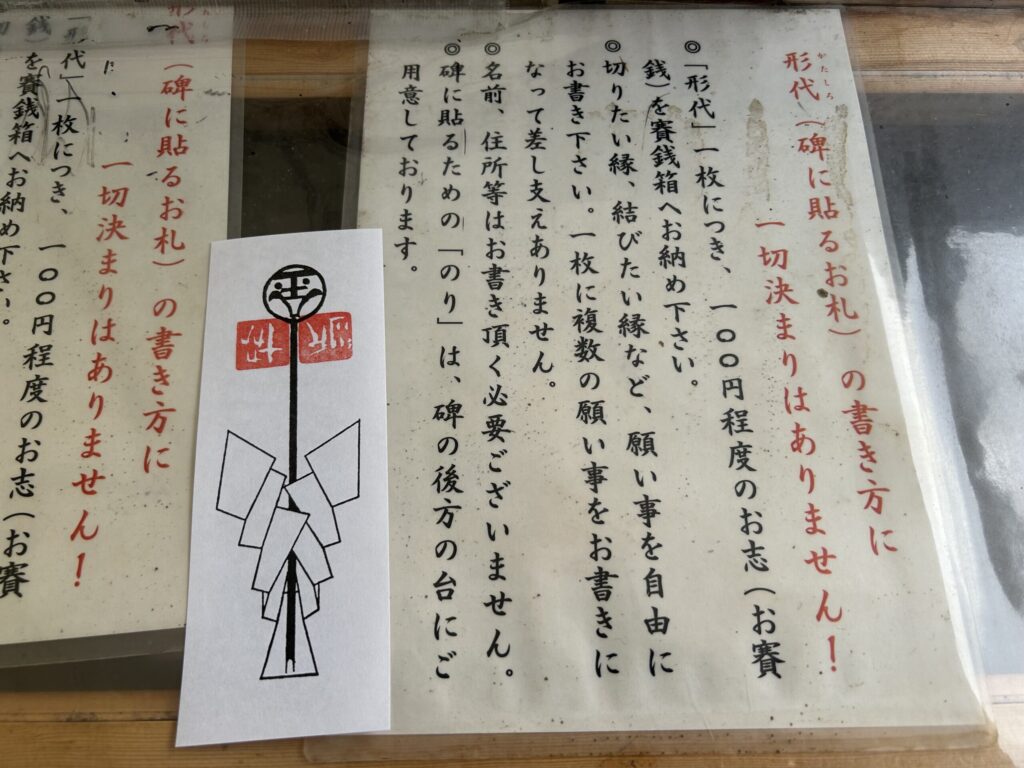 かたしろ
形代（碑に貼るお札）の書き方に
一切決まりはありません！
◎「形代」一枚につき、一〇〇円程度のお志（お賽
銭）を賽銭箱へお納め下さい。
◎切りたい縁、結びたい縁など、願い事を自由に
お書き下さい。一枚に複数の願い事をお書きに
なって差し支えありません。
◎名前、住所等はお書き頂く必要ございません。
◎碑に貼るための「のり」は、碑の後方の台にご
用意しております。
形代（碑に貼るお札）の書き方に
一切決まりはありません！
「形代」一枚につき、一〇〇円程度のお志（お賽
銭を賽銭箱へお納め下さい。